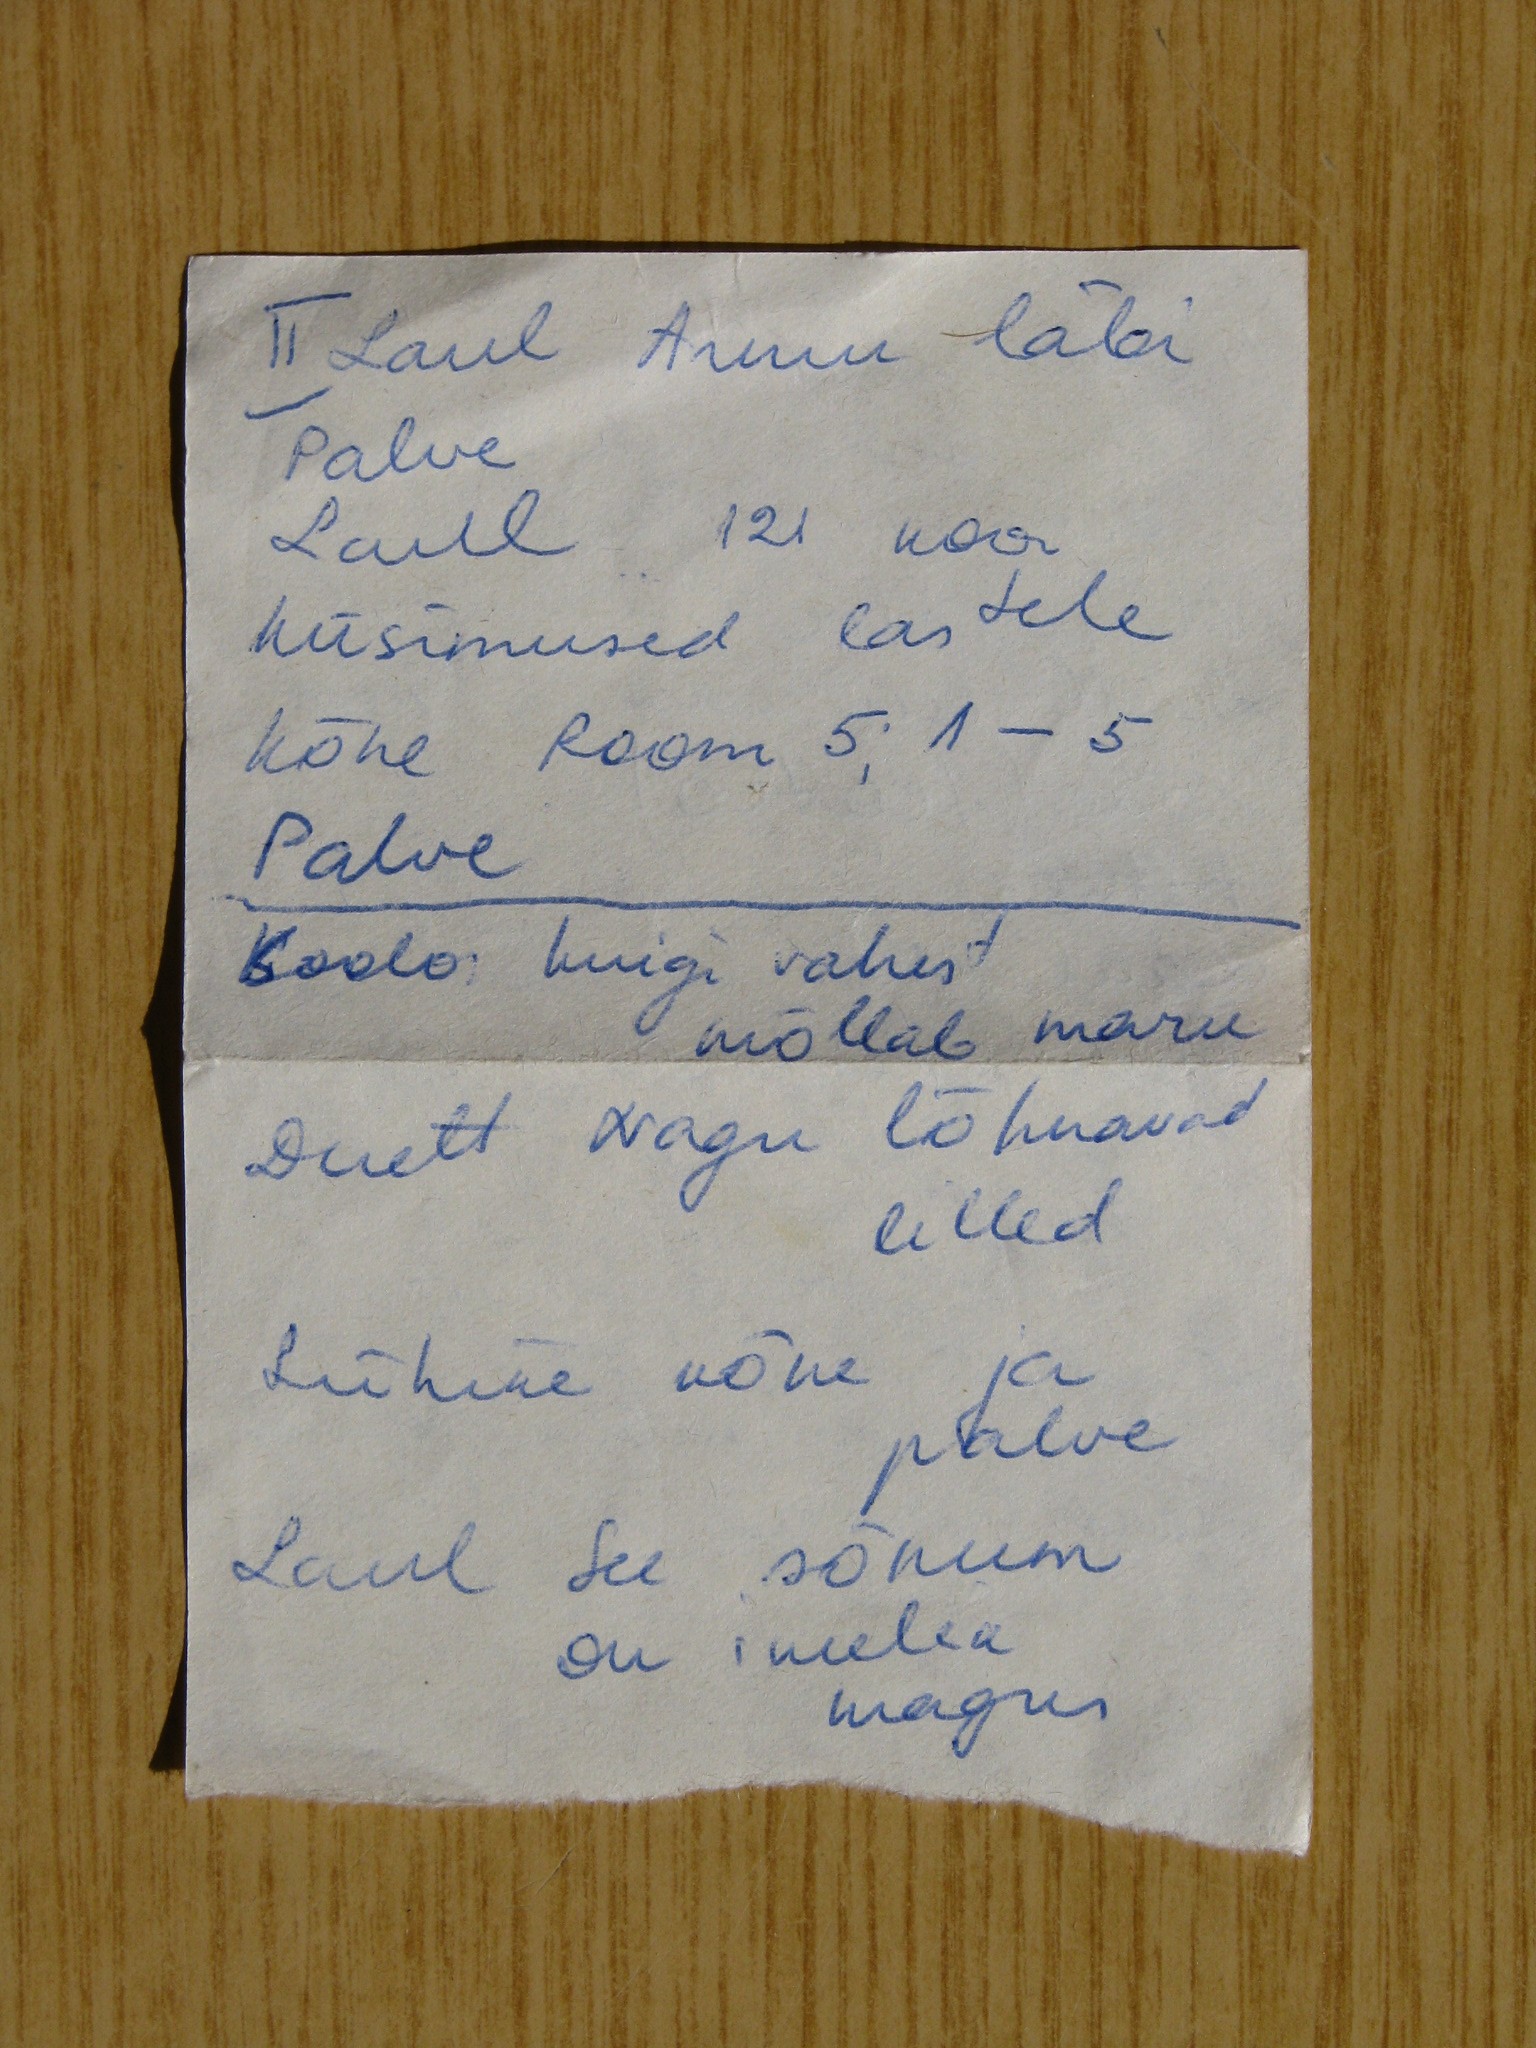 II Laul Armu läbi
Palve
Laul 121 koor
Küsimused lastele
Kõne Room 5; 1 – 5
Palve
Soolo: Kuigi vahest
möllab maru
Duett Nagu lõhnavad
lilled
Lühike kõne ja
palve
Laul See sõnum
on imelik
magus